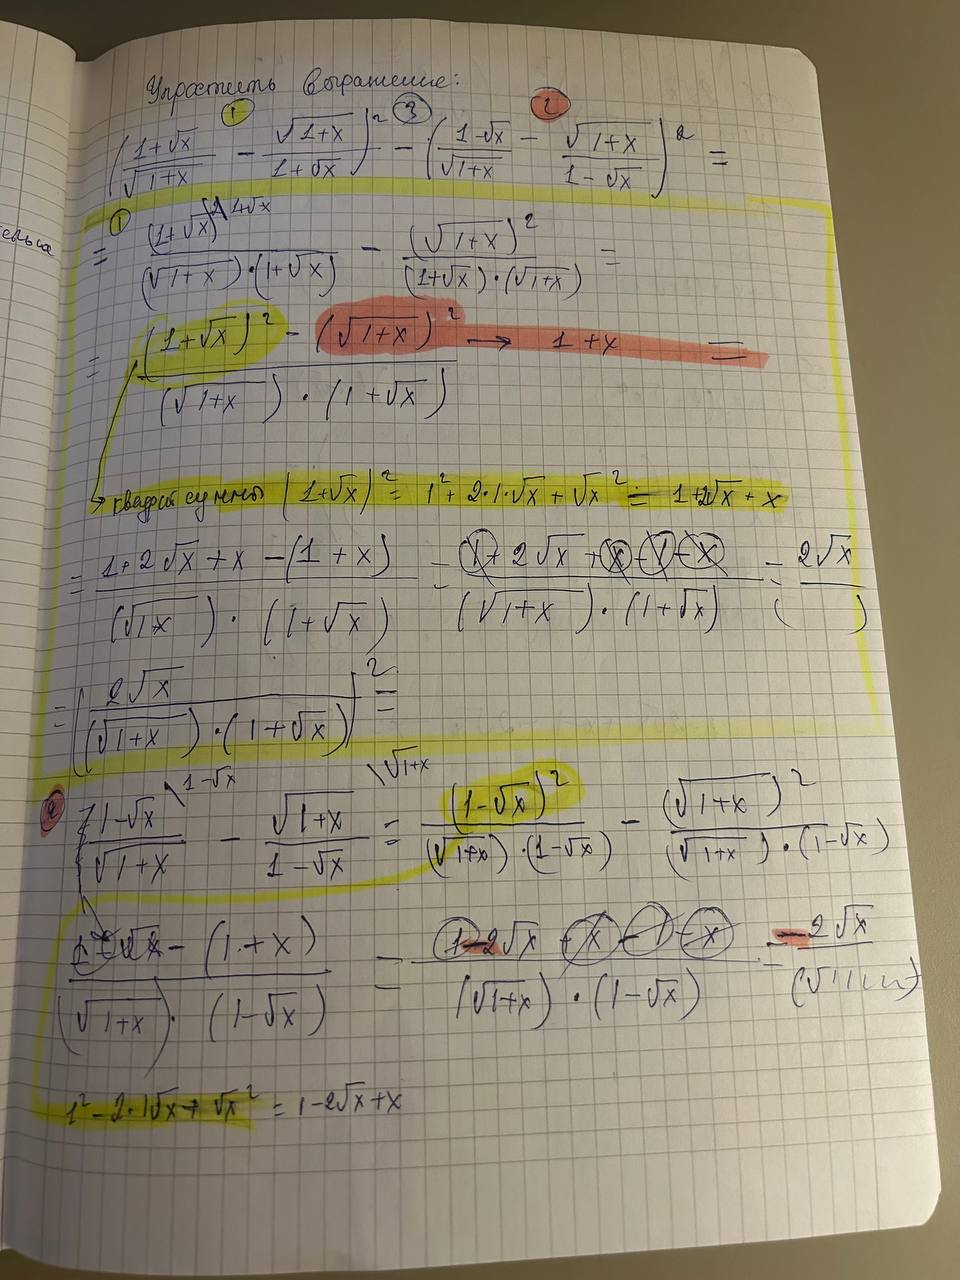 Упростить выражение:
① ③ ②
((1+√x)/√(1+x) − √(1+x)/(1+√x))² − ((1−√x)/√(1+x) − √(1+x)/(1−√x))² =
① = (1+√x)^{\1+√x}/((√(1+x))·(1+√x)) − (√(1+x))²/((1+√x)·(√(1+x))) =
= ((1+√x)² − (√(1+x))²)/((√(1+x))·(1+√x)) → 1+x =
→ квадрат суммы (1+√x)² = 1² + 2·1·√x + √x² = 1+2√x + x
= (1+2√x+x −(1+x))/((√(1+x))·(1+√x)) = (1+2√x+x−1−x)/((√(1+x))·(1+√x)) = 2√x/( )
= (2√x/((√(1+x))·(1+√x)))² =
② (1−√x)/√(1+x) \1−√x − √(1+x)/(1−√x) \√(1+x) = (1−√x)²/((√(1+x))·(1−√x)) − (√(1+x))²/((√(1+x))·(1−√x))
− (1+x)/((√(1+x))·(1−√x)) = (1−2√x+x−1−x)/((√(1+x))·(1−√x)) = −2√x/
1²−2·1√x+√x² = 1−2√x+x